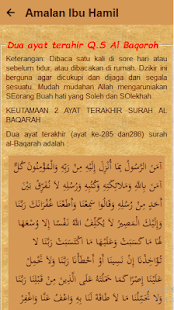 Amalan Ibu Hamil
Dua ayat terahir Q.S Al Baqoroh
Keterangan: Dibaca satu kali di sore hari atau
sebelum tidur, atau dibacakan di rumah. Dzikir ini
berguna agar dicukupi dan dijaga dari segala
sesuatu. Mudah mudahan Allah menganuniakan
SEorang Buah hati yang Soleh dan SOlekhah.
KEUTAMAAN 2 AYAT TERAKHIR SURAH AL
BAQARAH
Dua ayat terakhir (ayat ke-285 dan286) surah
al-Baqarah adalah
آمَنَ الرَّسُولُ بِمَا أُنْزِلَ إِلَيْهِ مِنْ رَبِّهِ وَالْمُؤْمِنُونَ كُلٌّ
آمَنَ بِاللَّهِ وَمَلَائِكَتِهِ وَكُتُبِهِ وَرُسُلِهِ لَا نُفَرِّقُ بَيْنَ
أَحَدٍ مِنْ رُسُلِهِ وَقَالُوا سَمِعْنَا وَأَطَعْنَا غُفْرَانَكَ رَبَّنَا
وَإِلَيْكَ الْمَصِيرُ لَا يُكَلِّفُ اللَّهُ نَفْسًا إِلَّا وُسْعَهَا
لَهَا مَا كَسَبَتْ وَعَلَيْهَا مَا اكْتَسَبَتْ رَبَّنَا لَا
تُؤَاخِذْنَا إِنْ نَسِينَا أَوْ أَخْطَأْنَا رَبَّنَا وَلَا تَحْمِلْ
عَلَيْنَا إِصْرًا كَمَا حَمَلْتَهُ عَلَى الَّذِينَ مِنْ قَبْلِنَا رَبَّنَا
وَلَا تُحَمِّلْنَا مَا لَا طَاقَةَ لَنَا بِهِ وَاعْفُ عَنَّا وَاغْفِرْ